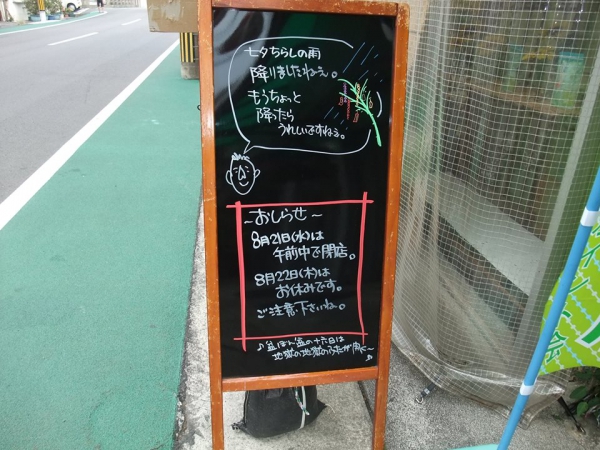 七夕ちらしの雨
降りましたねぇ。
もうちょっと
降ったら
うれしいですねぇ。
～おしらせ～
8月21日(水)は
午前中で閉店。
8月22日(木)は
お休みです。
ご注意下さいね。
♪盆ぼん盆の十六日は
地獄の地獄のふたが開く～♪